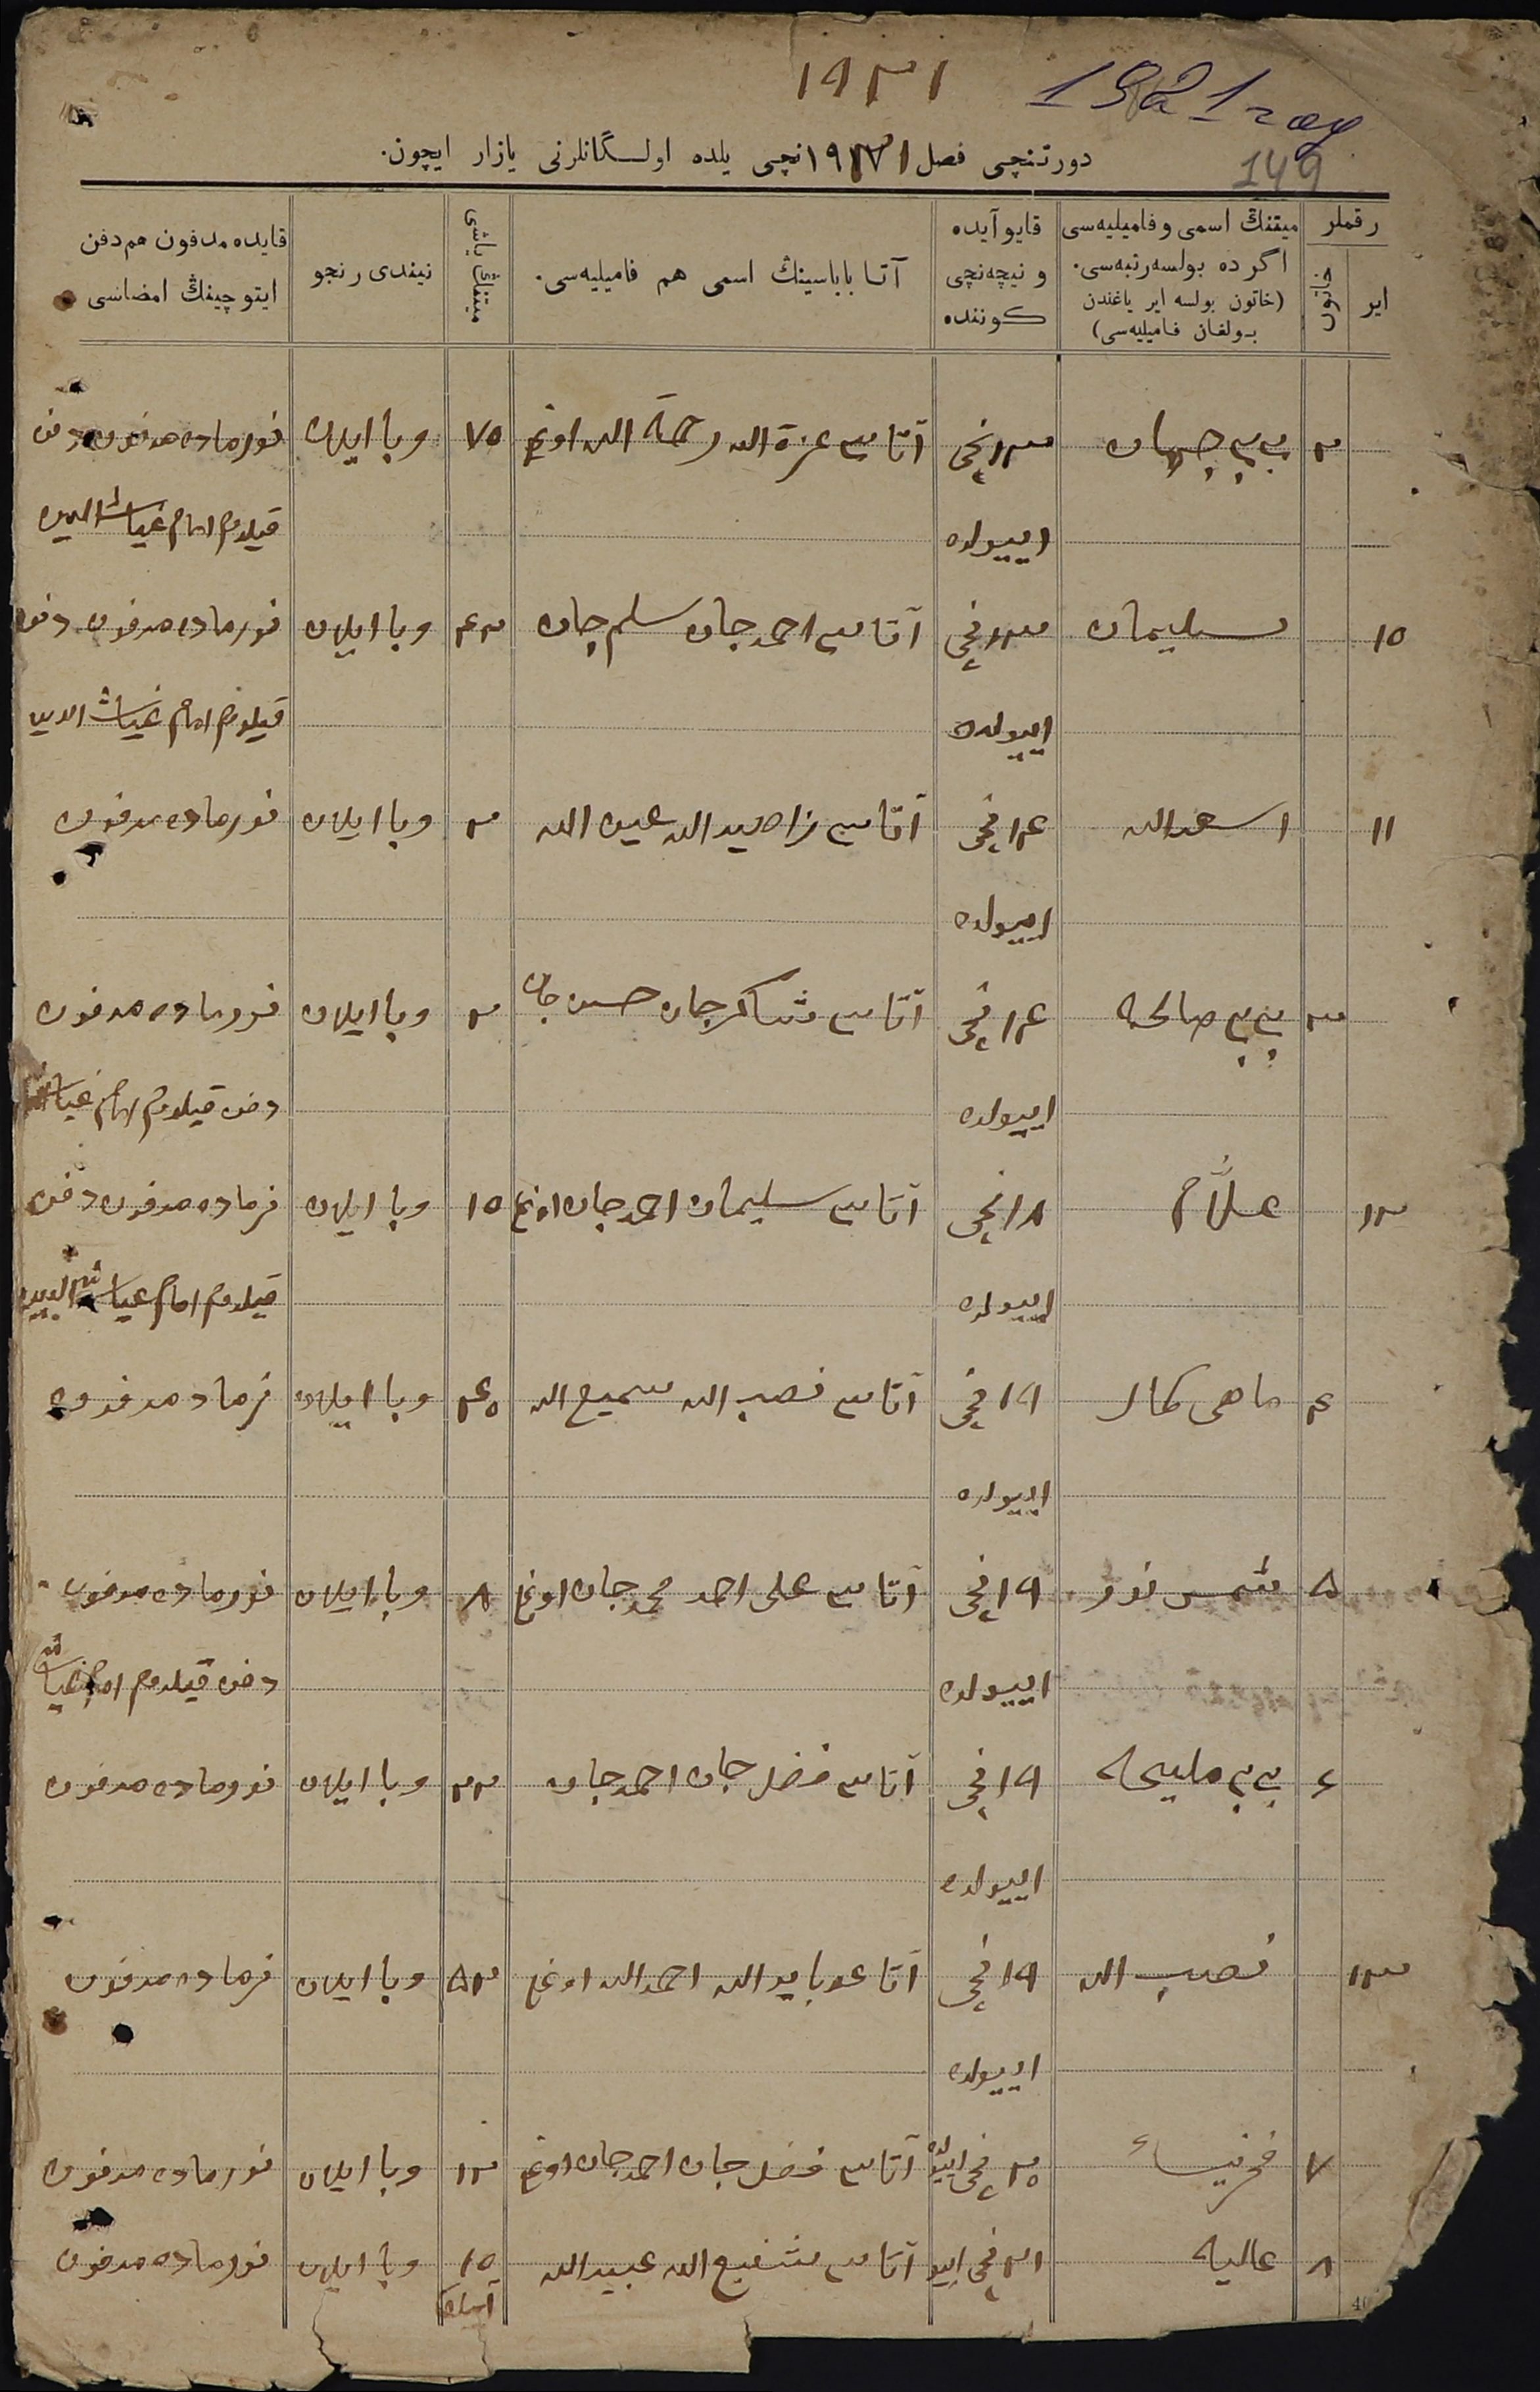 ۱۹۲۱ 1921 год
149
دورتنچی فصل ۱۹۲۱نچی یلده اولسگانلرنی یازار ایچون.
رقملر
ایر
خاتون
میتنڭ اسمی و فامیلیه‌سی
اگر ده بولسه رتبه‌سی.
(خاتون بولسه ایر یاغندن
بولغان فامیلیه‌سی)
قایو آیده
و نیچه‌نچی
کوننده
آتا باباسینڭ اسمی هم فامیلیه‌سی.
میتنڭ یاشی
نیندی رنجو
قایده مدفون هم دفن
ایتوچینڭ امضاسی
۲ بی بی جهان ۱۳نچی آتاسی عزة الله رحمة الله اوغ ۷۵ وبا ایلان نورماده مدفون دفن
اییولده قیلدم امام غیاث الدین
۱۰ سلیمان ۱۳نچی آتاسی احمدجان سلیم جان ۴۳ وبا ایلان نورماده مدفون دفن
اییولده قیلدم امام غیاث الدین
۱۱ اسعدالله ۱۴نچی آتاسی زاهیدالله عین الله ۲ وبا ایلان نورماده مدفون
اییولده
۳ بی بی صالحه ۱۴نچی آتاسی شاکرجان حسن جان ۲ وبا ایلان نورماده مدفون
اییولده دفن قیلدم امام غیاث
۱۲ علّام ۱۸نچی آتاسی سلیمان احمدجان اوغ ۱۵ وبا ایلان نرماده مدفون دفن
اییولده قیلدم امام غیاث الدین
۴ ماهی کمال ۱۹نچی آتاسی نصیب الله سمیع الله ۴۰ وبا ایلان نرماده مدفون
اییولده
۵ شمس نور ۱۹نچی آتاسی علی احمد محمدجان اوغ ۸ وبا ایلان نورماده مدفون
اییولده دفن قیلدم امام غیاث
۶ بی بی ملیحه ۱۹نچی آتاسی فضل جان احمدجان ۲۳ وبا ایلان نورماده مدفون
اییولده
۱۳ نصیب الله ۱۹نچی آتا احمدالله اوغ ۵۳ وبا ایلان نرماده مدفون
اییولده
۷ فخرنیساء ۲۰نچی ایولده آتاسی فضل جان احمدجان اوغ ۱۲ وبا ایلان نورماده مدفون
۸ عالیه ۲۱نچی اییو آتاسی شفیع الله عبیدالله ۱۰ وبا ایلان نورماده مدفون
آیلق